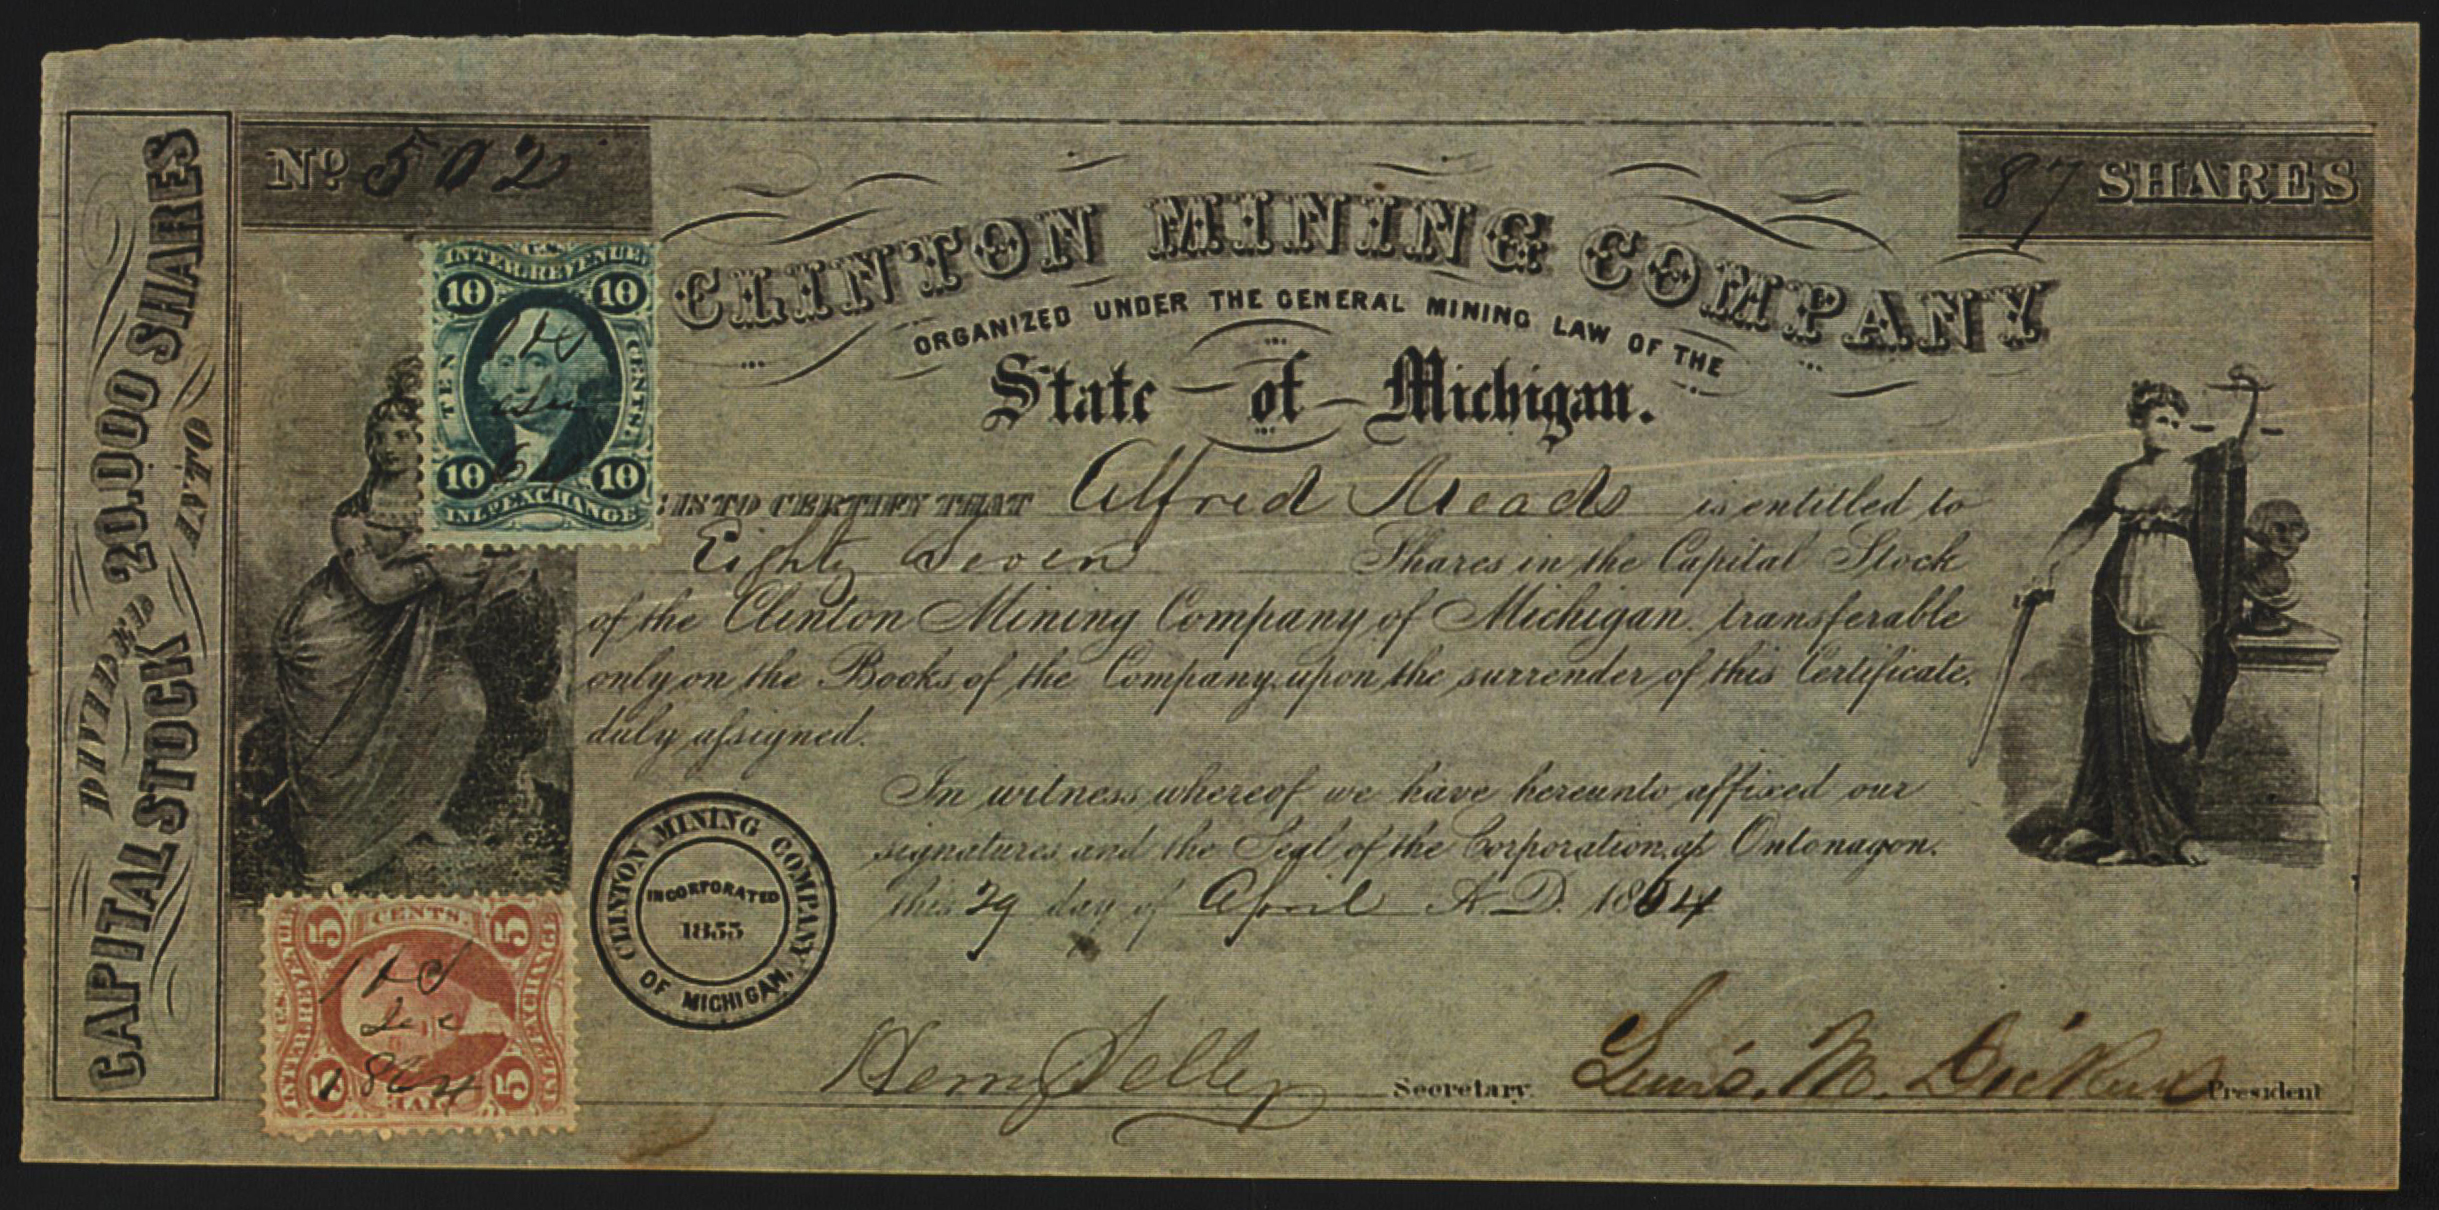 No 502
87 SHARES
CAPITAL STOCK
DIVIDED INTO
20.000 SHARES
U.S.
INTER. REVENUE.
10 10
TEN CENTS.
10 10
INL'D EXCHANGE
CLINTON MINING COMPANY
ORGANIZED UNDER THE GENERAL MINING LAW OF THE
State of Michigan.
IS TO CERTIFY THAT Alfred Meads is entitled to
Eighty Seven Shares in the Capital Stock
of the Clinton Mining Company of Michigan. transferable
only on the Books of the Company, upon the surrender of this Certificate.
duly assigned.
In witness whereof, we have hereunto affixed our
signatures and the Seal of the Corporation, at Ontonagon.
this 29 day of April A.D. 1864
CLINTON MINING COMPANY
OF MICHIGAN,
INCORPORATED
1855
5 CENTS. 5
U.S. INTER. REVENUE
EXCHANGE
5 FIVE 5
Dec
1864
Henry Selby Secretary.
Lewis. M. Dickens President